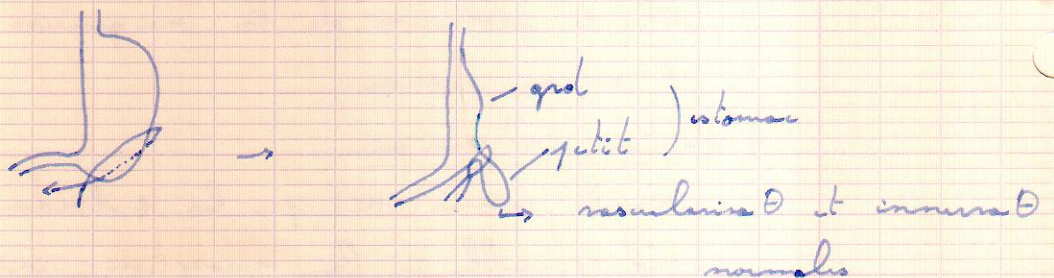 grd
petit
) estomac
vascularisaθ et innervaθ
normales